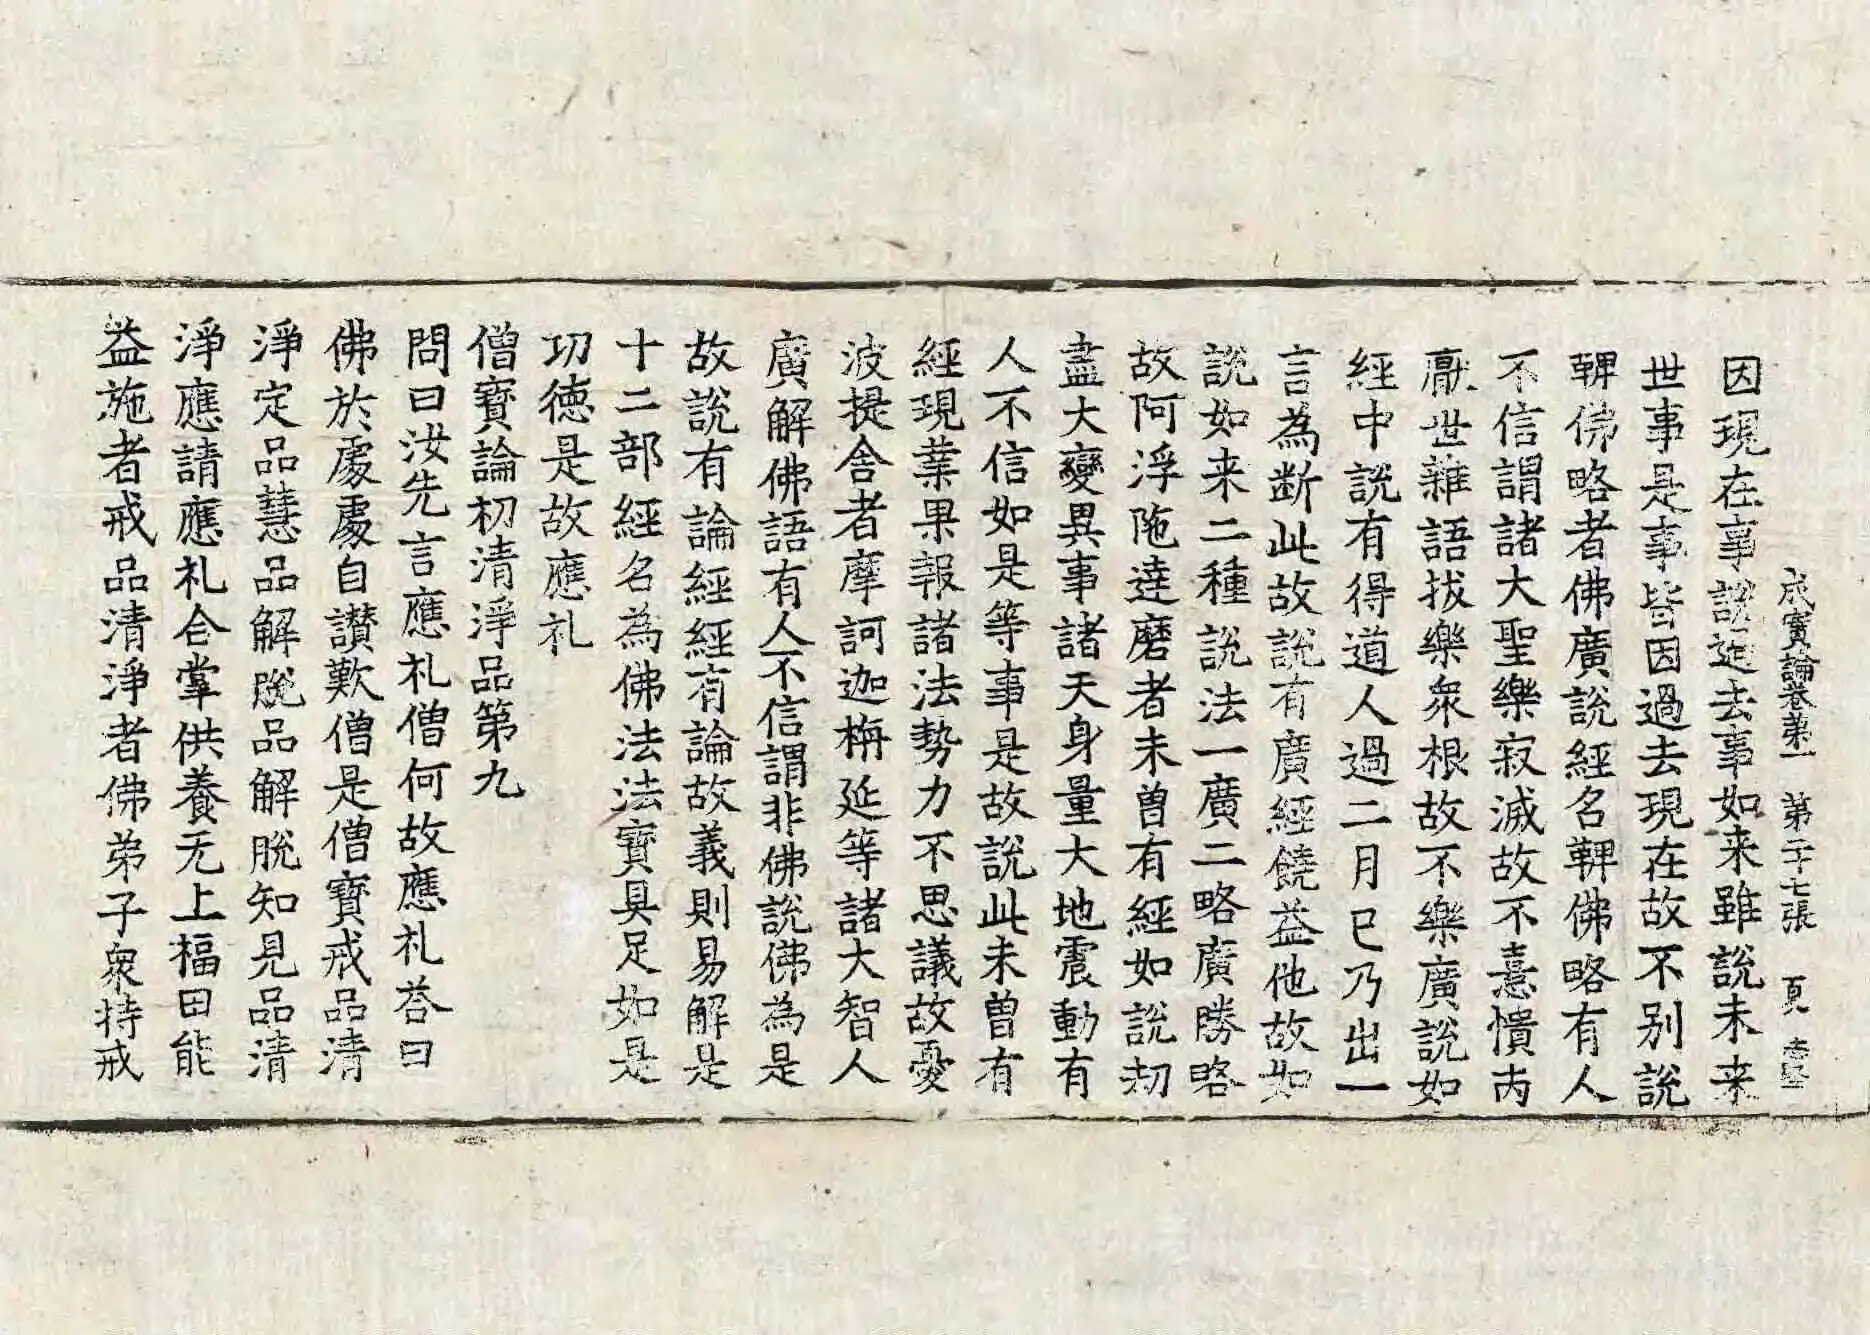 成實論卷第一 第二十七張 頁
因現在事說過去事如来雖說未来
世事是事皆因過去現在故不别說
鞞佛略者佛廣說經名鞞佛略有人
不信謂諸大聖樂寂滅故不憙憒丙
厭世雜語拔樂衆根故不樂廣說如
經中說有得道人過二月已乃出一
言為断此故說有廣經饒益他故如
說如来二種說法一廣二略廣勝略
故阿浮陁達磨者未曽有經如說劫
盡大變異事諸天身量大地震動有
人不信如是等事是故說此未曽有
經現業果報諸法勢力不思議故憂
波提舍者摩訶迦栴延等諸大智人
廣解佛語有人不信謂非佛說佛為是
故說有論經經有論故義則易解是
十二部經名為佛法法寶具足如是
功德是故應礼
僧寶論初清淨品第九
問曰汝先言應礼僧何故應礼荅曰
佛於處處自讃歎僧是僧寶戒品清
淨定品慧品解脫品解脫知見品清
淨應請應礼合掌供養无上福田能
益施者戒品清淨者佛弟子衆持戒